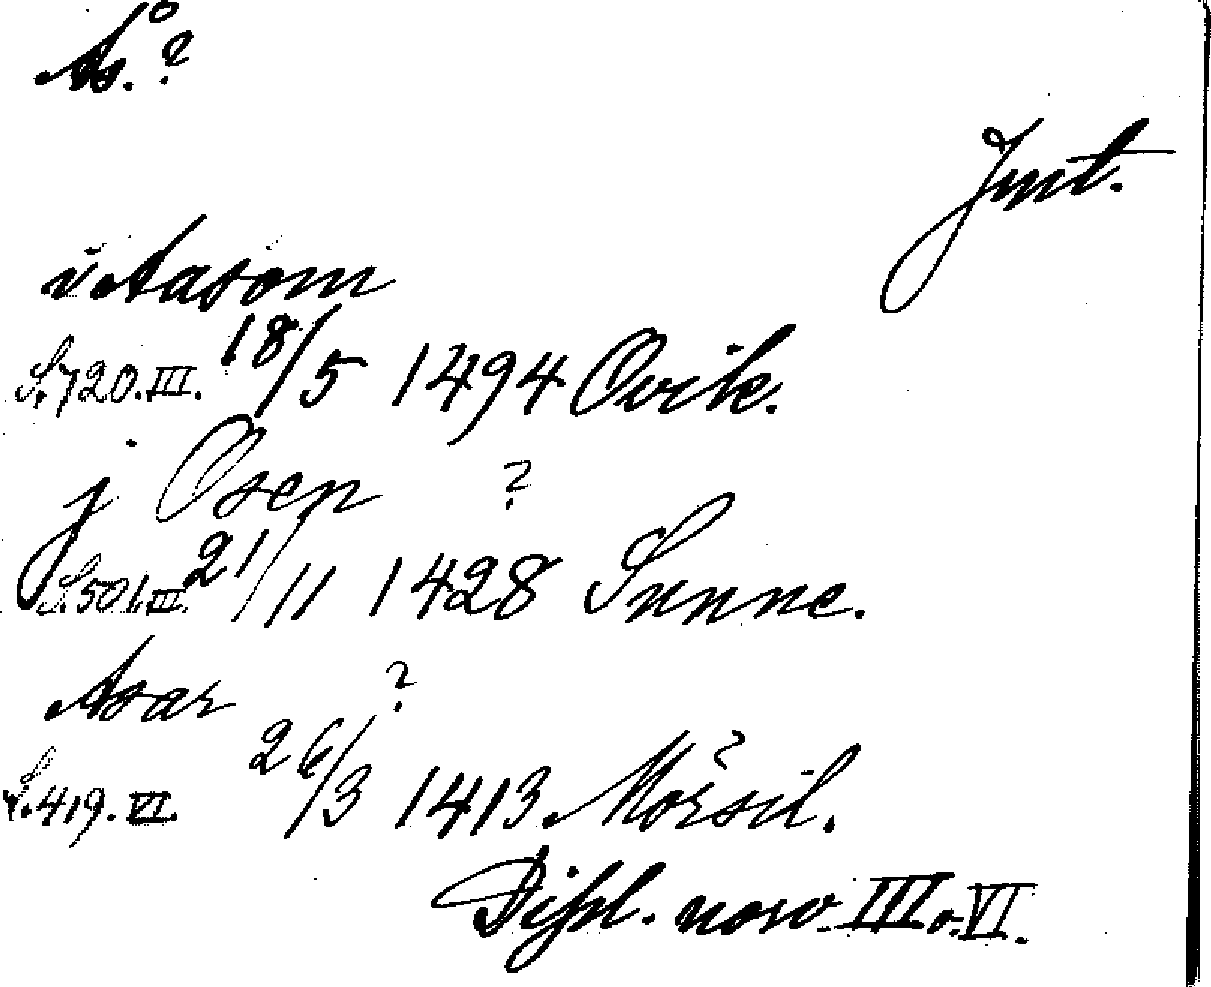 Ås.?
Jmt.
i Aasom
S. 720. III. 18/5 1494 Ovik.
j Osen ?
S. 501. III. 21/11 1428 Sunne.
Asar ?
S. 419. VI. 26/3 1413. Mörsil.
Dipl. norv. III o. VI.